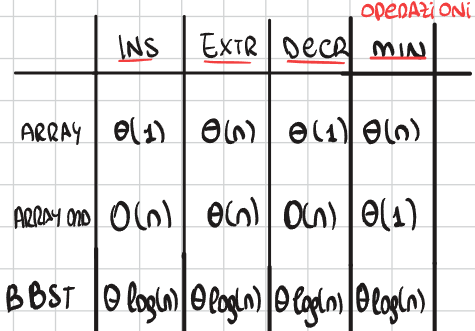 OPERAZIONI
INS EXTR DECR MIN
ARRAY Θ(1) Θ(n) Θ(1) Θ(n)
ARRAY ORD O(n) Θ(n) O(n) Θ(1)
BBST Θlog(n) Θlog(n) Θlog(n) Θlog(n)